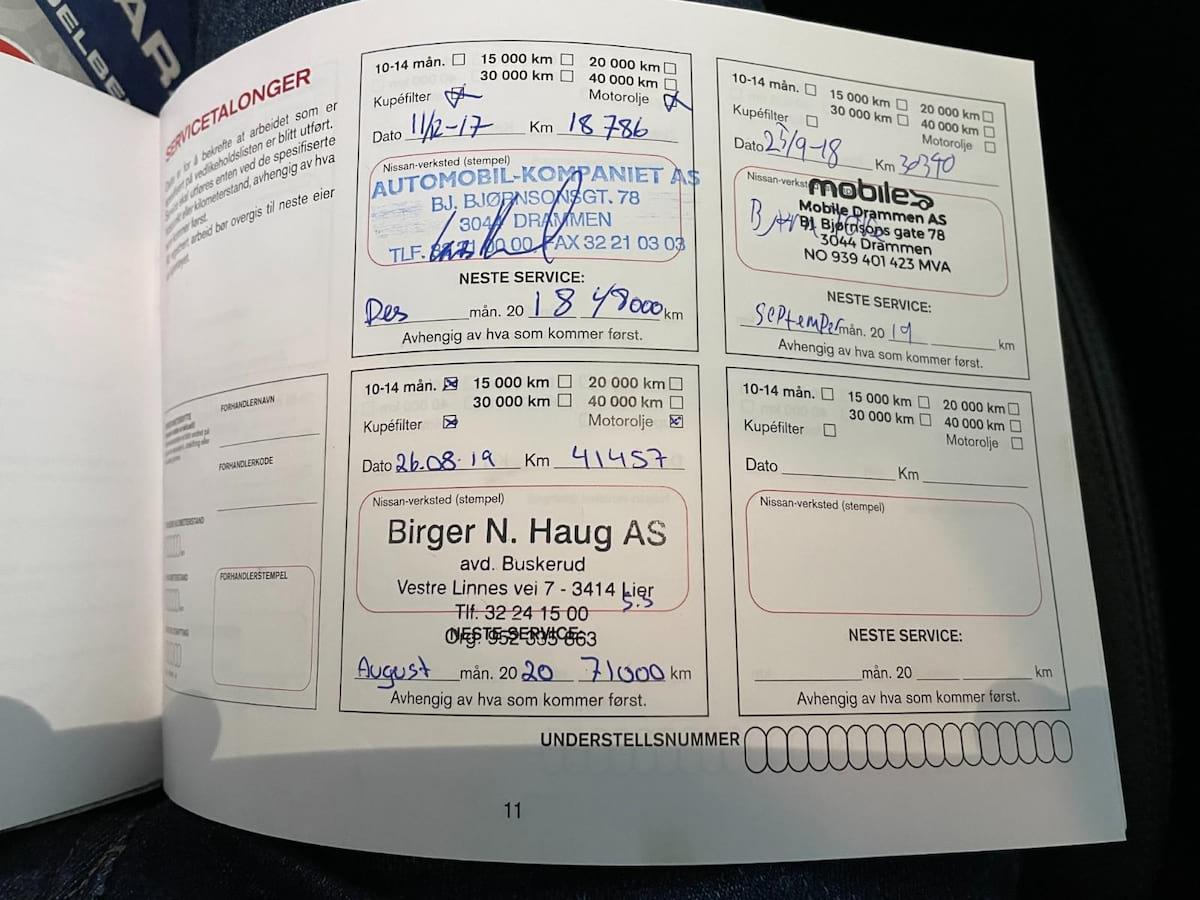 AR
DELBE
SERVICETALONGER
for å bekrefte at arbeidet som er
på vedlikeholdslisten er blitt utført.
skal utføres enten ved de spesifiserte
eller kilometerstand, avhengig av hva
først.
arbeid bør overgis til neste eier
FORHANDLERNAVN
FORHANDLERKODE
FORHANDLERSTEMPEL
10-14 mån. 15 000 km 20 000 km
30 000 km 40 000 km
Kupéfilter Motorolje
Dato 11/12-17 Km 18 786
Nissan-verksted (stempel)
AUTOMOBIL-KOMPANIET AS
BJ. BJØRNSONSGT. 78
3044 DRAMMEN
TLF. 32 21 00 00 FAX 32 21 03 03
NESTE SERVICE:
Des mån. 20 18 48000 km
Avhengig av hva som kommer først.
10-14 mån. 15 000 km 20 000 km
30 000 km 40 000 km
Kupéfilter Motorolje
Dato 25/9-18 Km 30340
Nissan-verksted
mobile
Mobile Drammen AS
Bj Bjørnsons gate 78
3044 Drammen
NO 939 401 423 MVA
NESTE SERVICE:
September mån. 20 19 km
Avhengig av hva som kommer først.
10-14 mån. 15 000 km 20 000 km
30 000 km 40 000 km
Kupéfilter Motorolje
Dato 26.08.19 Km 41457
Nissan-verksted (stempel)
Birger N. Haug AS
avd. Buskerud
Vestre Linnes vei 7 - 3414 Lier
S.S
Tlf. 32 24 15 00
NESTE SERVICE:
Org. 952 335 863
August mån. 20 20 71000 km
Avhengig av hva som kommer først.
10-14 mån. 15 000 km 20 000 km
30 000 km 40 000 km
Kupéfilter Motorolje
Dato Km
Nissan-verksted (stempel)
NESTE SERVICE:
mån. 20 km
Avhengig av hva som kommer først.
UNDERSTELLSNUMMER
11